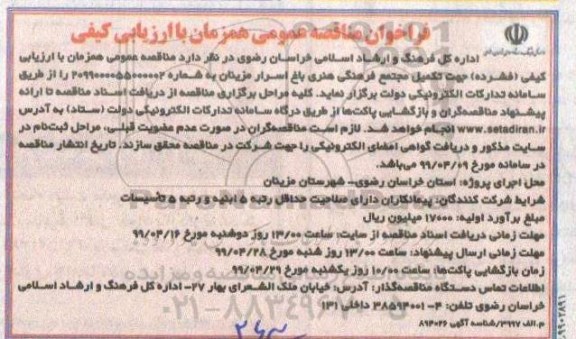 فراخوان مناقصه عمومی همزمان با ارزیابی کیفی
اداره کل فرهنگ و ارشاد اسلامی خراسان رضوی در نظر دارد مناقصه عمومی همزمان با ارزیابی
کیفی (فشرده) جهت تکمیل مجتمع فرهنگی هنری باغ اسرار مزینان به شماره ۲۰۹۹۰۰۰۰۵۵۰۰۰۰۰۲ را از طریق
سامانه تدارکات الکترونیکی دولت برگزار نماید. کلیه مراحل برگزاری مناقصه از دریافت اسناد مناقصه تا ارائه
پیشنهاد مناقصه‌گران و بازگشایی پاکت‌ها از طریق درگاه سامانه تدارکات الکترونیکی دولت (ستاد) به آدرس
www.setadiran.ir انجام خواهد شد. لازم است مناقصه‌گران در صورت عدم عضویت قبلی، مراحل ثبت‌نام در
سایت مذکور و دریافت گواهی امضای الکترونیکی را جهت شرکت در مناقصه محقق سازند. تاریخ انتشار مناقصه
در سامانه مورخ ۹۹/۰۴/۰۹ می‌باشد.
محل اجرای پروژه: استان خراسان رضوی- شهرستان مزینان
شرایط شرکت کنندگان: پیمانکاران دارای صلاحیت حداقل رتبه ۵ ابنیه و رتبه ۵ تأسیسات
مبلغ برآورد اولیه: ۱۷۰۰۰ میلیون ریال
مهلت زمانی دریافت اسناد مناقصه از سایت: ساعت ۱۳/۰۰ روز دوشنبه مورخ ۹۹/۰۴/۱۶
مهلت زمانی ارسال پیشنهاد: ساعت ۱۳/۰۰ روز شنبه مورخ ۹۹/۰۴/۲۸
زمان بازگشایی پاکت‌ها: ساعت ۱۰/۰۰ روز یکشنبه مورخ ۹۹/۰۴/۲۹
اطلاعات تماس دستگاه مناقصه‌گذار: آدرس: خیابان ملک الشعرای بهار ۲۷- اداره کل فرهنگ و ارشاد اسلامی
خراسان رضوی تلفن: ۴- ۳۸۵۹۴۰۰۱ داخلی ۱۳۱
م.الف ۳۹۹۷/شناسه آگهی ۸۹۴۰۲۶
۰۲۱-۸۸۳۴۹۶۷۰